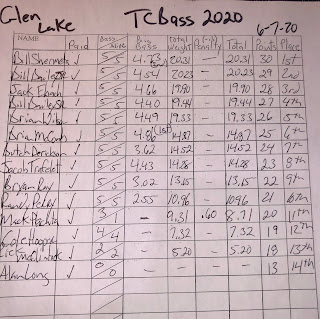 Glen Lake TCBass 2020 6-7-20
NAME Paid Bass Size Big Bass Total Weight (-) Penalty Total Points Place
Bill 5/5 20.31 — 20.31 30 1st
Bill 5/5 4.54 20.23 — 20.23 29 2nd
Jack 5/5 4.66 19.90 — 19.90 28 3rd
Bill 5/5 4.40 19.44 — 19.44 27 4th
Brian 5/5 4.49 — 26 5th
Brian 5/5 4.86 14.87 — 14.87 25 6th
Butch 5/5 3.62 14.52 — 14.52 24 7th
Jacob 5/5 4.43 14.28 — 14.28 23 8th
Bryan Ray 5/5 3.02 13.65 — 13.65 22 9th
5/5 2.55 10.96 — 10.96 21 10th
Mack 3/1 — 9.31 .60 8.71 20 11th
Cole 4/4 — 7.32 — 7.32 19 12th
2/2 — 5.20 — 5.20 18 13th
Alan Long 0/0 — — — — 13 14th